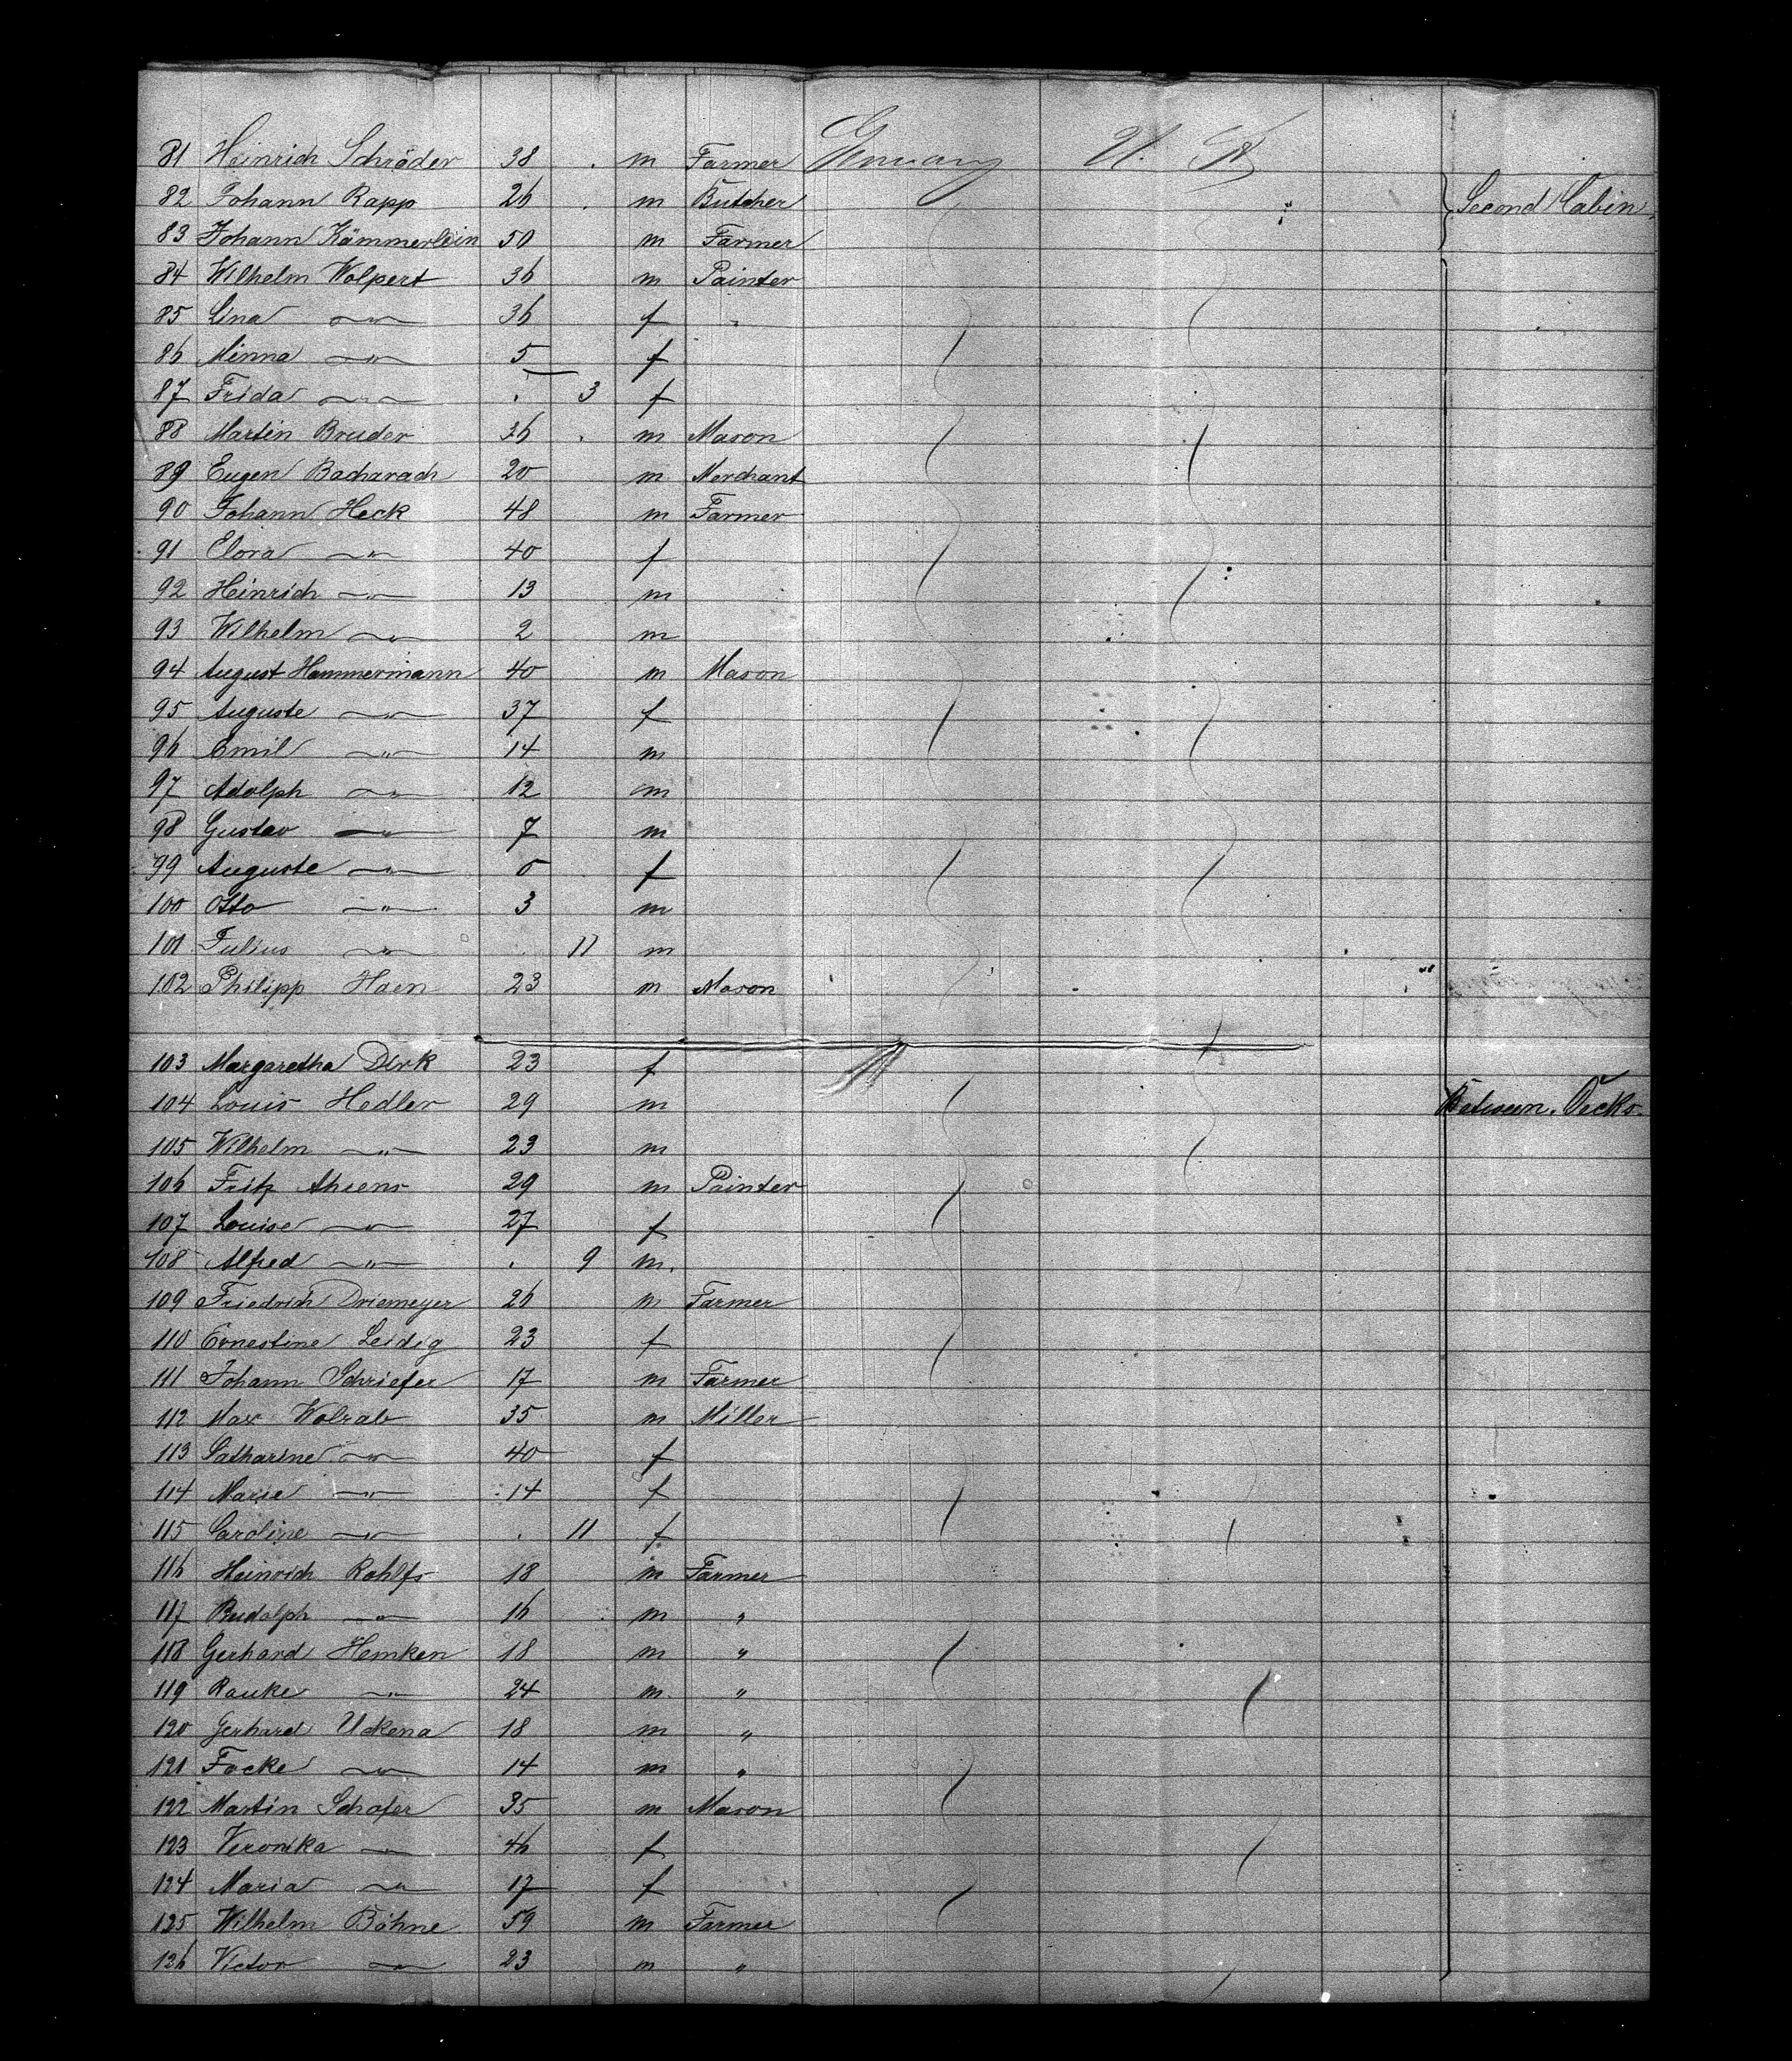 81 Heinrich Schröder 38 . m Farmer Germany U. S.
82 Johann Rapp 26 . m Butcher Second Cabin.
83 Johann Kämmerlein 50 m Farmer
84 Wilhelm Wolpert 36 m Painter
85 Lina —"— 36 f "
86 Minna —"— 5 f
87 Frida —"— . 3 f
88 Martin Bruder 36 . m Mason
89 Eugen Bacharach 20 m Merchant
90 Johann Heck 48 m Farmer
91 Clora —"— 40 f
92 Heinrich —"— 13 m
93 Wilhelm —"— 2 m
94 August Hammermann 40 m Mason
95 Auguste —"— 37 f
96 Emil —"— 14 m
97 Adolph —"— 12 m
98 Gustav —"— 7 m
99 Auguste —"— 5 f
100 Otto —"— 3 m
101 Julius —"— . 11 m
102 Philipp Haen 23 m Mason
103 Margaretha Dirk 23 f
104 Louis Hedler 29 m Between Decks.
105 Wilhelm —"— 23 m
106 Fritz Ahrens 29 m Painter
107 Louise —"— 27 f
108 Alfred —"— . 9 m.
109 Friedrich Driemeyer 26 m Farmer
110 Ernestine Leidig 23 f
111 Johann Schriefer 17 m Farmer
112 Max Wolrab 35 m Miller
113 Catharine —"— 40 f
114 Marie —"— 14 f
115 Caroline —"— . 11 f
116 Heinrich Rohlfs 18 m Farmer
117 Rudolph —"— 16 m "
118 Gerhard Hemken 18 m "
119 Rauke —"— 24 m. "
120 Gerhard Uckena 18 m "
121 Focke —"— 14 m "
122 Martin Schafer 35 m Mason
123 Veronika —"— 46 f
124 Maria —"— 17 f
125 Wilhelm Böhne 59 m Farmer
126 Victor —"— 23 m "